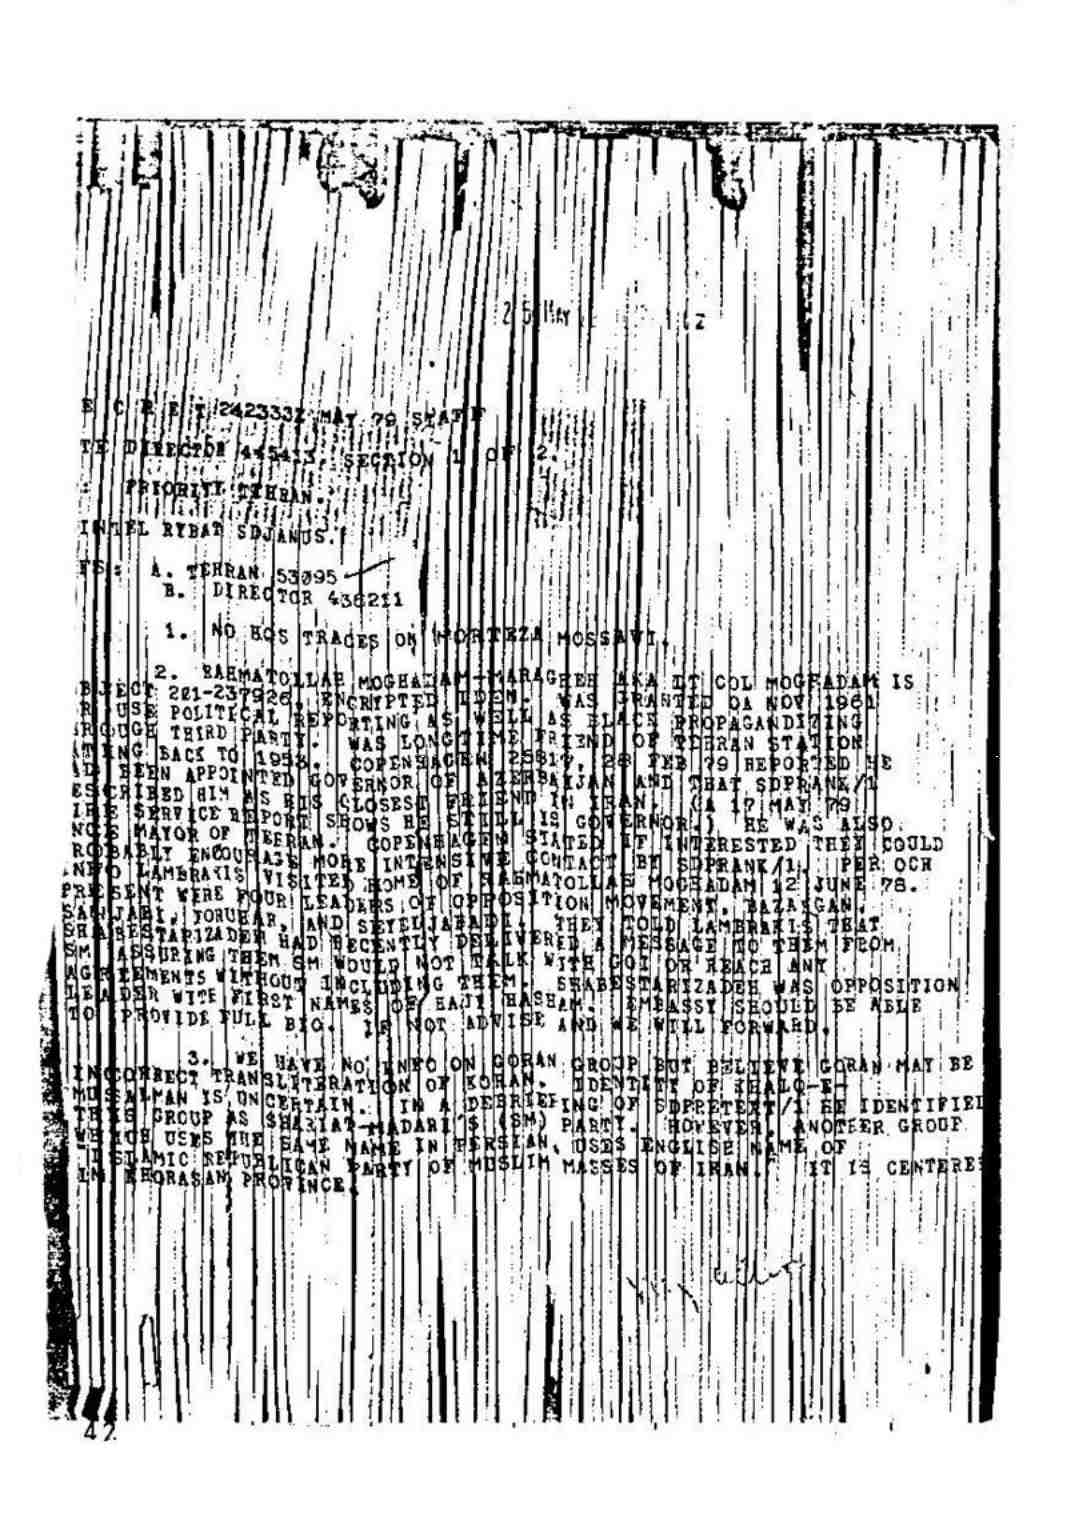 25 MAY Z
E C R E T 242333Z MAY 79 STAFF
TE DIRECTOR 445433. SECTION 1 OF 2.
: PRIORITY TEHRAN.
INTEL RYBAT SDJANUS.
FS: A. TEHRAN 53095
B. DIRECTOR 436211
1. NO HQS TRACES ON MORTEZA MOSSAVI.
2. RAHMATOLLAH MOGHADAM-MARAGHEH AKA LT COL MOGHADAM IS
BJECT 201-237926, ENCRYPTED IDEN. WAS GRANTED OA NOV 1961
R USE POLITICAL REPORTING AS WELL AS BLACK PROPAGANDIZING
ROUGH THIRD PARTY. WAS LONGTIME FRIEND OF TEHRAN STATION
ATING BACK TO 1953. COPENHAGEN 25817, 28 FEB 79 REPORTED HE
AD BEEN APPOINTED GOVERNOR OF AZERBAIJAN AND THAT SDPRANK/1
ESCRIBED HIM AS HIS CLOSEST FRIEND IN IRAN. (A 17 MAY 79
IRE SERVICE REPORT SHOWS HE STILL IS GOVERNOR.) HE WAS ALSO
NCE MAYOR OF TEHRAN. COPENHAGEN STATED IF INTERESTED THEY COULD
ROBABLY ENCOURAGE MORE INTENSIVE CONTACT BY SDPRANK/1. PER OCH
INFO LAMBRAKIS VISITED HOME OF RAHMATOLLAH MOGHADAM 12 JUNE 78.
PRESENT WERE FOUR LEADERS OF OPPOSITION MOVEMENT, BAZARGAN,
SANJABI, FORUHAR, AND SEYELJABADI. THEY TOLD LAMBRAKIS THAT
SHABESTARIZADEH HAD RECENTLY DELIVERED A MESSAGE TO THEM FROM
SM ASSURING THEM SM WOULD NOT TALK WITH GOI OR REACH ANY
AGREEMENTS WITHOUT INCLUDING THEM. SHABESTARIZADEH WAS OPPOSITION
LEADER WITH FIRST NAMES OF HAJI HASHAM. EMBASSY SHOULD BE ABLE
TO PROVIDE FULL BIO. IF NOT ADVISE AND WE WILL FORWARD.
3. WE HAVE NO INFO ON GORAN GROUP BUT BELIEVE GORAN MAY BE
INCORRECT TRANSLITERATION OF KORAN. IDENTITY OF KHALQ-E-
MUSSALMAN IS UNCERTAIN. IN A DEBRIEFING OF SDPRETEXT/1 HE IDENTIFIED
THIS GROUP AS SHARIAT-MADARI'S (SM) PARTY. HOWEVER, ANOTHER GROUP
WHICH USES THE SAME NAME IN PERSIAN, USES ENGLISH NAME OF
"ISLAMIC REPUBLICAN PARTY OF MUSLIM MASSES OF IRAN." IT IS CENTERED
IN KHORASAN PROVINCE.
42